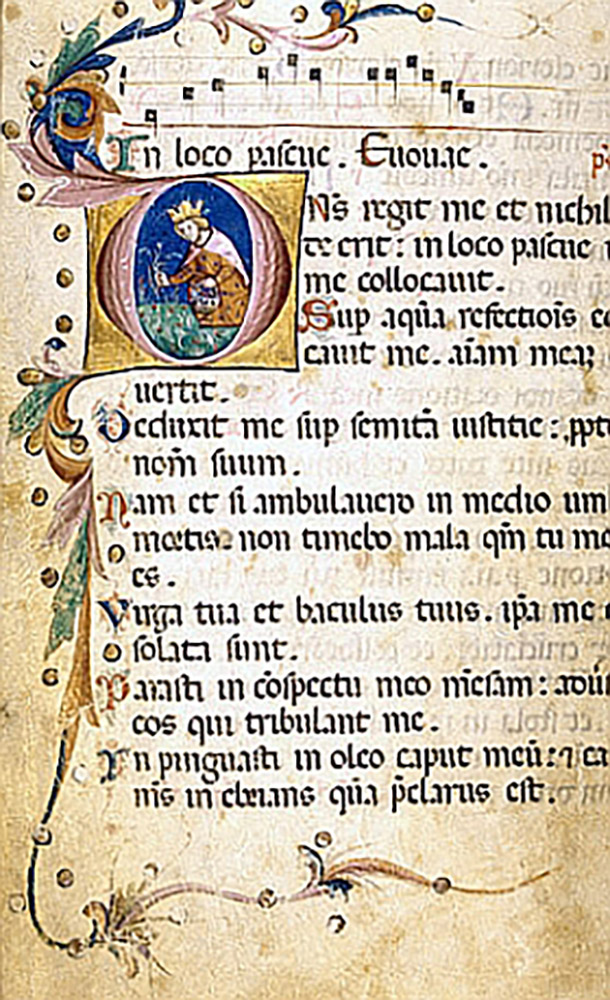 In loco pascue. Euouae. 
Dñs regit me et nichil
deerit: in loco pascue
me collocauit.
Sup aquā refectiõis
cauit me. aīam meaʒ
uertit.
Deduxit me sup semitā iustitie: ꝓpt
nom̄ suum.
Nam et si ambulauero in medio um
mortis: non timebo mala qm̄ tu me
es.
Virga tua et baculus tuus. ip̄a me
solata sunt.
Parasti in cōspectu meo mēsam: adūs
eos qui tribulant me.
In pinguasti in oleo caput meū: ⁊ ca
ms̄ inebrians quā p̄clarus est.